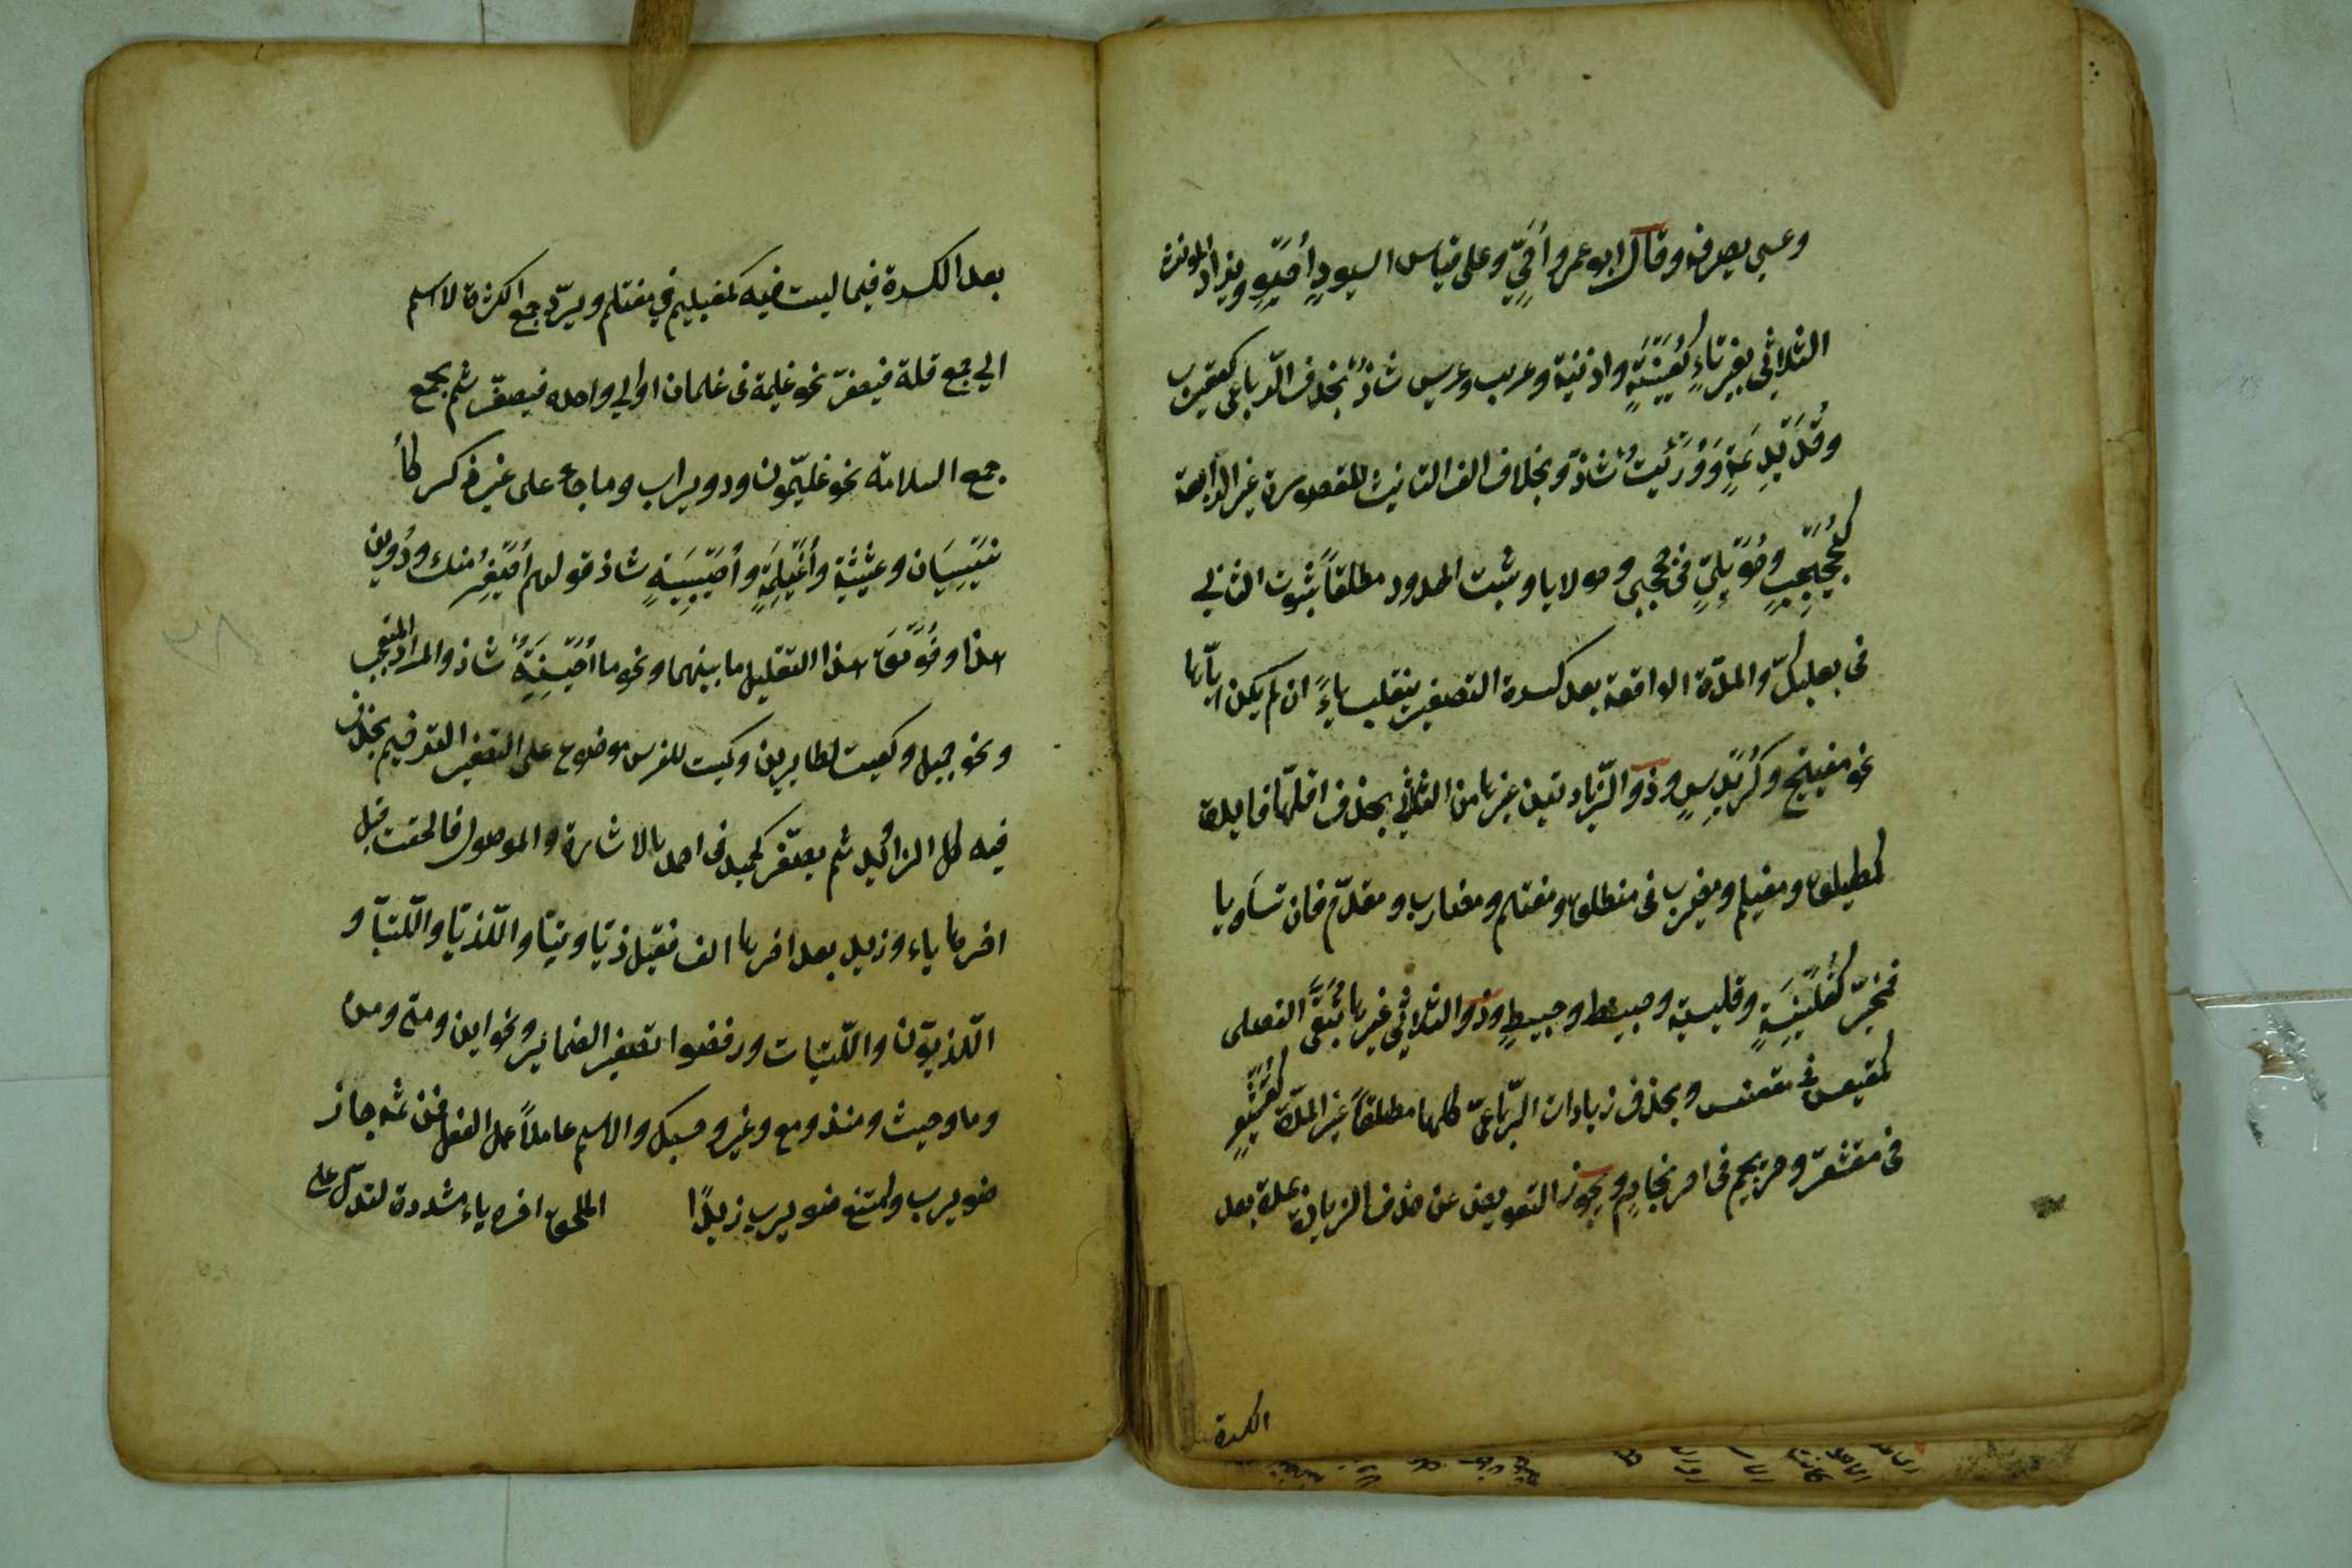 وعيسى يصرفه وقال ابو عمرو أُحَيٍّ وعلى قياس اسيود أُحَيْوٍ ويزاد للمؤنث
الثلاثى بغير تاءٍ كعُيَيْنَةٍ واذينة وعريب وعريس شاذٌّ بخلاف الرّباعى كعقيرب
وقُدَيْدِيمَةٍ وَوُرَيِّئَةٌ شاذ وبخلاف الف التانيث المقصورة غير الرابعة
كجُحَيْجِبٍ وحُوَيْلِيٍّ فى جحجبى وحولايا ويثبت الممدود مطلقاً ثبوت الثانى
فى بعلبك والمدّة الواقعة بعد كسرة التصغير ينقلب ياءً ان لم يكن ايّاها
نحو مفيتيح وكُرَيْدِيسٍ وذو الزّيادتين غيرها من الثلاثى يحذف اقلّها فايدة
كمطيلق ومغيلم ومضيرب فى منطلق ومغتلم ومضارب ومقدّم فان تساويا
فمخيّر كقُلَيْنِسَةٍ وقليسية وحبينط وحبيطٍ وذو الثلاثى غيرها تُبَقّى الفضلى
كمقيعس فى مقعنسس ويحذف زيادات الرّباعىّ كلها مطلقاً غير المدّة كقُشَيْعِرٍ
فى مقشعرّ وحريجيم فى احرنجامٍ ويجوز التعويض عن حذف الزيادة بمدة بعد
الكسرة
بعد الكسرة فيما ليست فيه كمغيليم فى مغتلم ويردّ جمع الكثرة لا اسم
الى جمع قلة فيصغّر نحو غليمة فى غلمان او الى واحده فيصغّر ثم يجمع
جمع السلامة نحو غليّمون ودويرات وما جاء على غير ذكر كأُ
نَيْسِيَان وعشيشية وأُغَيْلِمَةٍ وأُصَيْبِيَةٍ شاذ قولهم أُصَيْغِرُ منك ودُوَين
هذا وفُوَيْقَ هذا لتقليل ما بينهما ونحو ما أُحَيْسِنَهُ شاذ والمراد المتعجب
ونحو جميل وكعيت لطايرين وكميت للفرس موضوع على التصغير وتصغير الترخيم بحذف
فيه كل الزائد ثم يصغّر كحميد فى احمد والاشارة والموصول فالحقت قبل
اخرها ياء وزيد بعد اخرها الف فقيل ذيّا وتيّا والّلذيّا والّلتيّا و
الّلذيّون والّلتيّات ورفضوا تصغير الضماير ونحو اين ومتى ومن
وما وحيث ومنذ ومع وغير وحسبك والاسم عاملاً عمل الفعل فمن ثمه جاز
ضويرب وامتنع ضويرب زيدًا المنسوب الملحق اخره ياء مشددة لتدل على